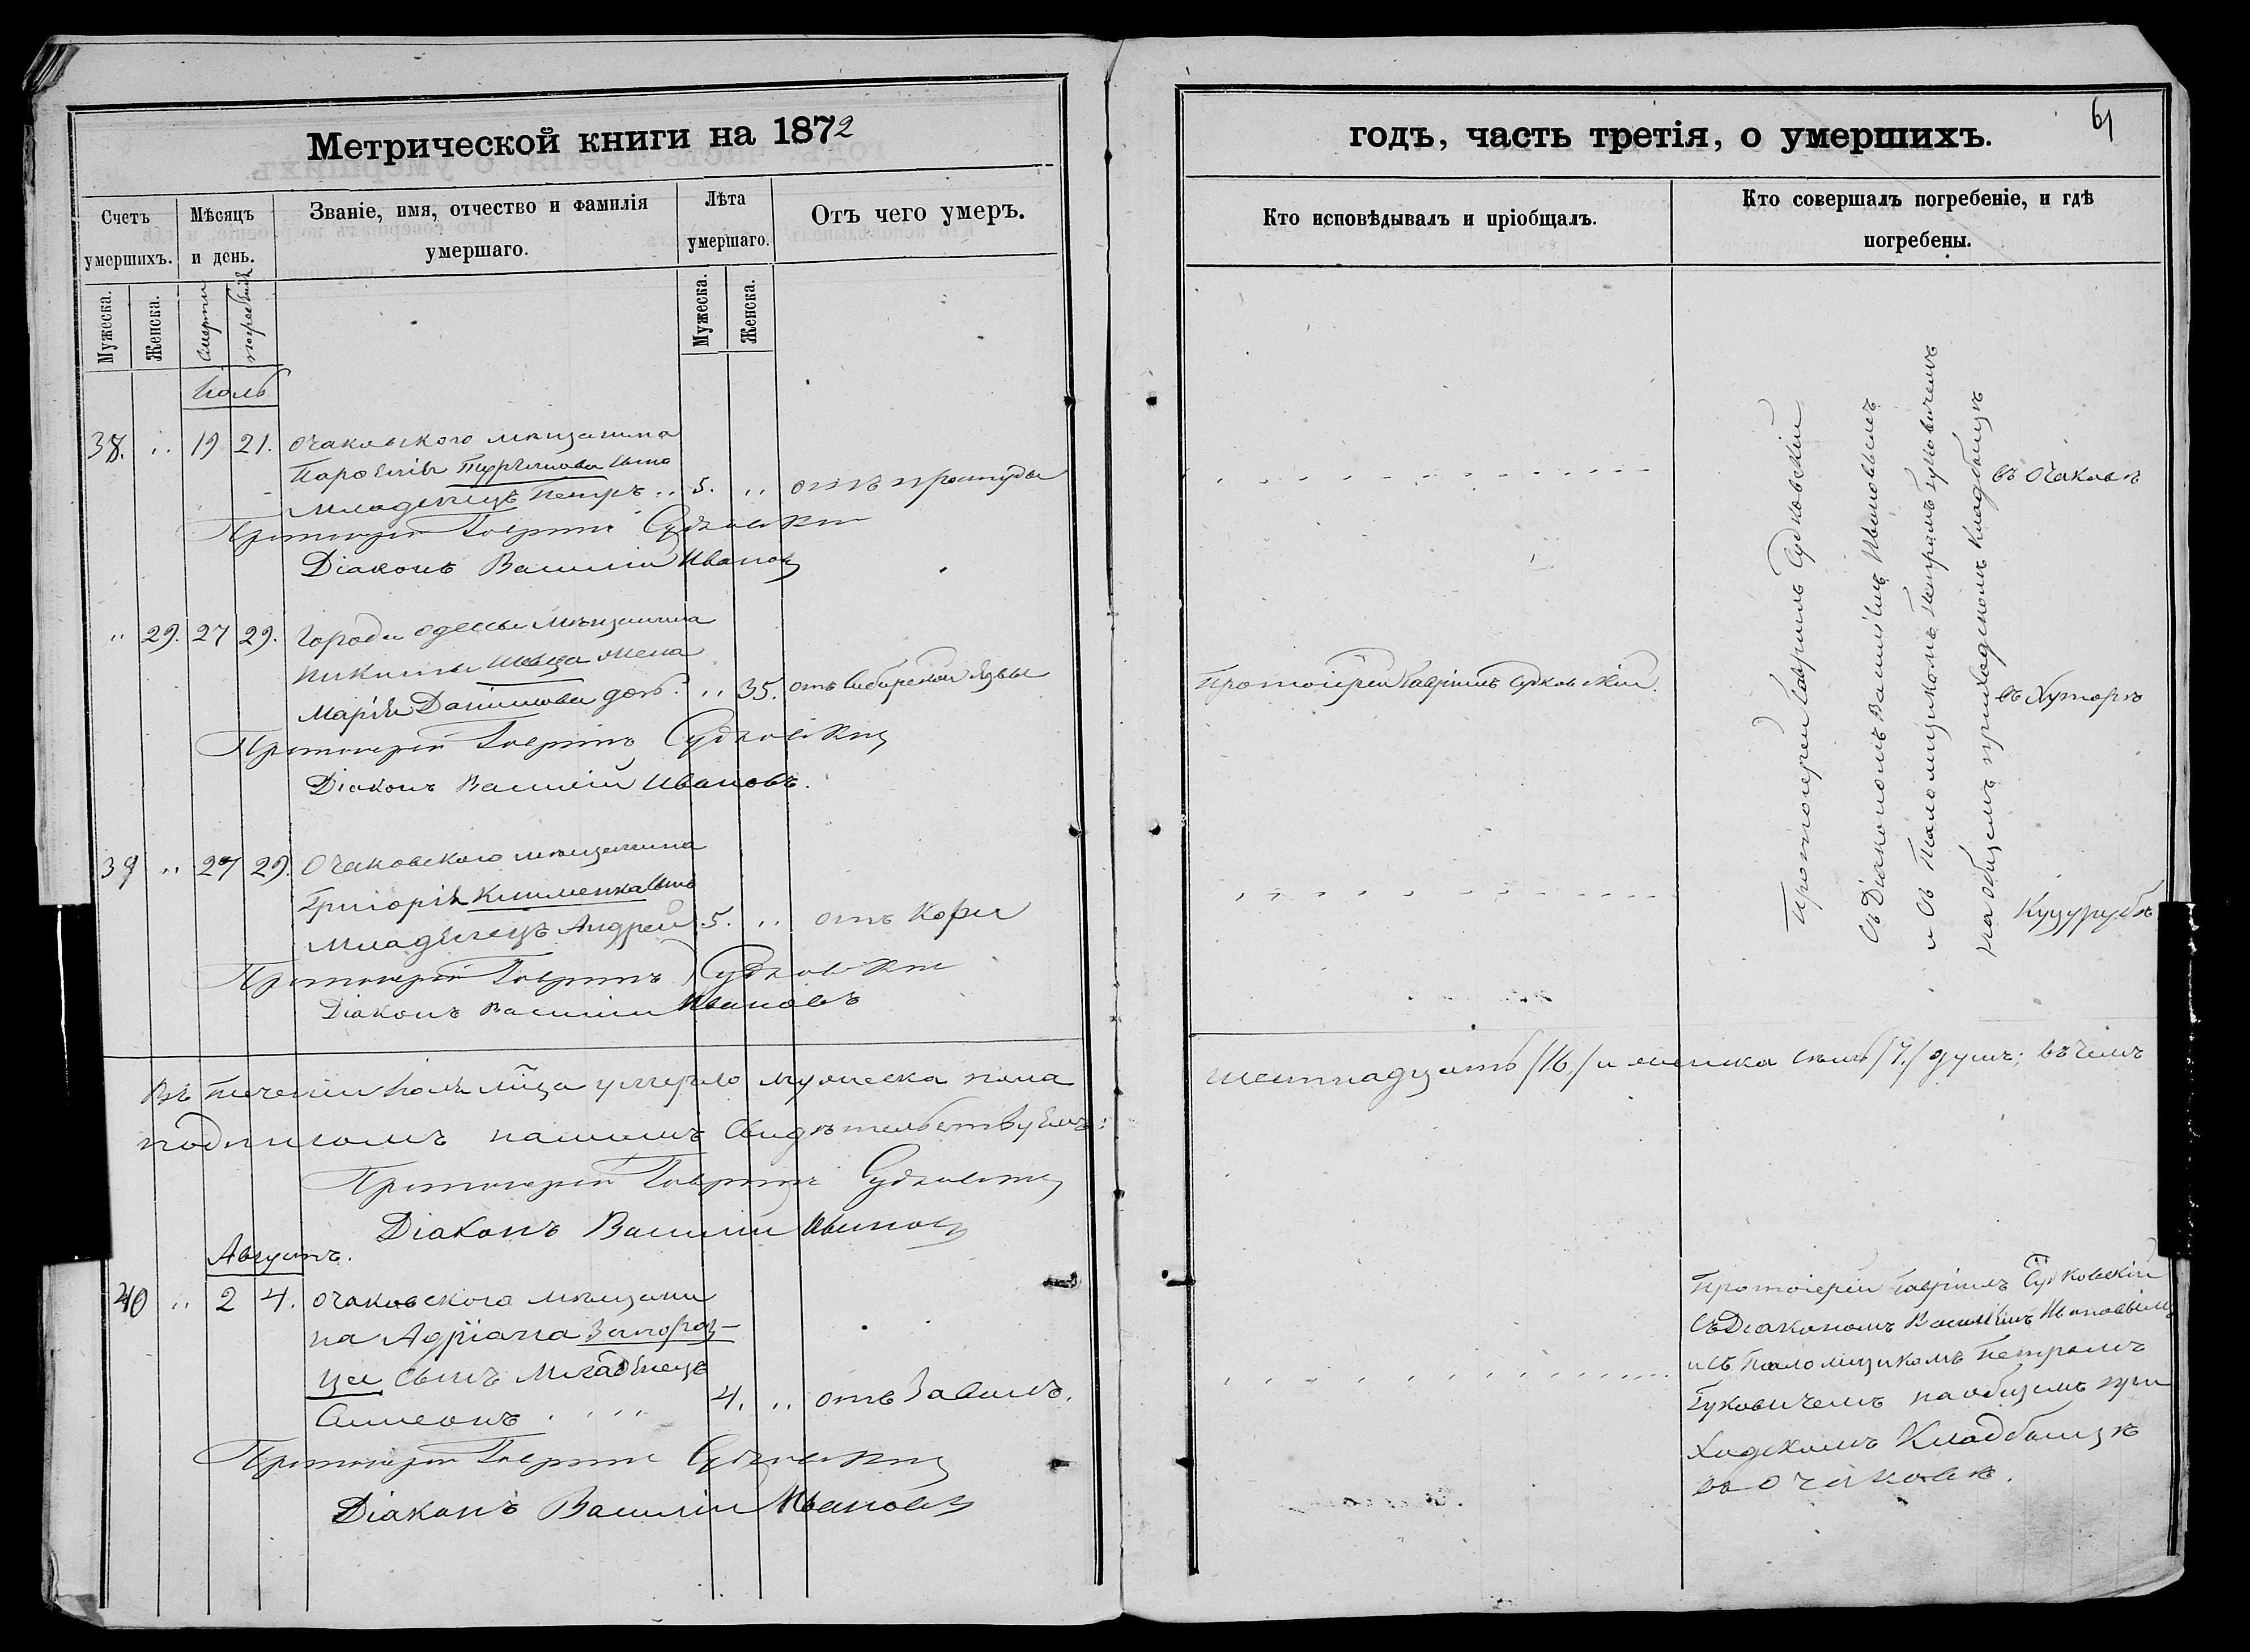 Метрической книги на 1872
Счетъ умершихъ.
Мужеска.
Женска.
Мѣсяцъ и день.
Смерти
погребенія
Званіе, имя, отчество и фамилія умершаго.
Лѣта умершаго.
Мужеска.
Женска.
Отъ чего умеръ.
Іюль
38. „ 19 21. Очаковскаго мѣщанина
сынъ
младенецъ Петръ „ 5. „ отъ простуды
Протоіерей Гавріилъ Судковскій
Діаконъ Василій Ивановъ
„ 29. 27 29. Города Одессы мѣщанина
Никиты Швеца жена
Марія Данилова дочь. „ 35. отъ Сибирской язвы
Протоіерей Гавріилъ Судковскій
Діаконъ Василій Ивановъ.
39 „ 27 29. Очаковскаго мѣщанина
Григорія Клименка сынъ
Младенецъ Андрей 5. „ отъ Кори
Протоіерей Гавріилъ Судковскій
Діаконъ Василій Ивановъ
Въ теченіи Іюля мѣсяца умерло мужеска пола
подписомъ нашимъ свидѣтельствуемъ:
Протоіерей Гавріилъ Судковскій
Діаконъ Василій Ивановъ
Августъ.
40 „ 2 4. Очаковскаго мѣщани
на Адріана Запорож-
ца сынъ Младенецъ
Симеонъ 4. „ отъ Завалъ.
Протоіерей Гавріилъ Судковскій
Діаконъ Василій Ивановъ
61
годъ, часть третія, о умершихъ.
Кто исповѣдывалъ и пріобщалъ.
Кто совершалъ погребеніе, и гдѣ погребены.
Протоіерей Гавріилъ Судковскій
съ Діакономъ Василіемъ Ивановымъ
и съ Паломщикомъ Петромъ Гуковичемъ
на общемъ приходскомъ кладбищѣ
въ Очаковѣ
Протоіерей Гавріилъ Судковскій.
въ Хуторѣ
Куцурубѣ
шестнадцать /16/ и женска семь /7./ душъ; въ чемъ
Протоіерей Гавріилъ Судковскій
съ Діакономъ Василіемъ Ивановымъ
и съ Паломщикомъ Петромъ
Гуковичемъ на общемъ при
ходскомъ Кладбищѣ
въ Очаковѣ.